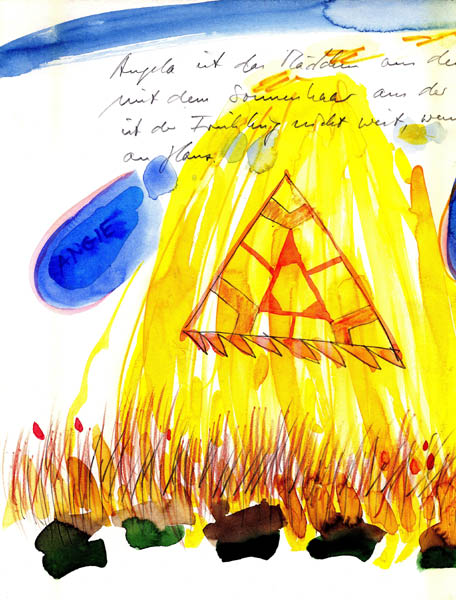 Angela ist das Mädchen aus dem
mit dem Sonnenhaar aus der
ist der Frühling nicht weit, wenn
an Hans
ANGIE